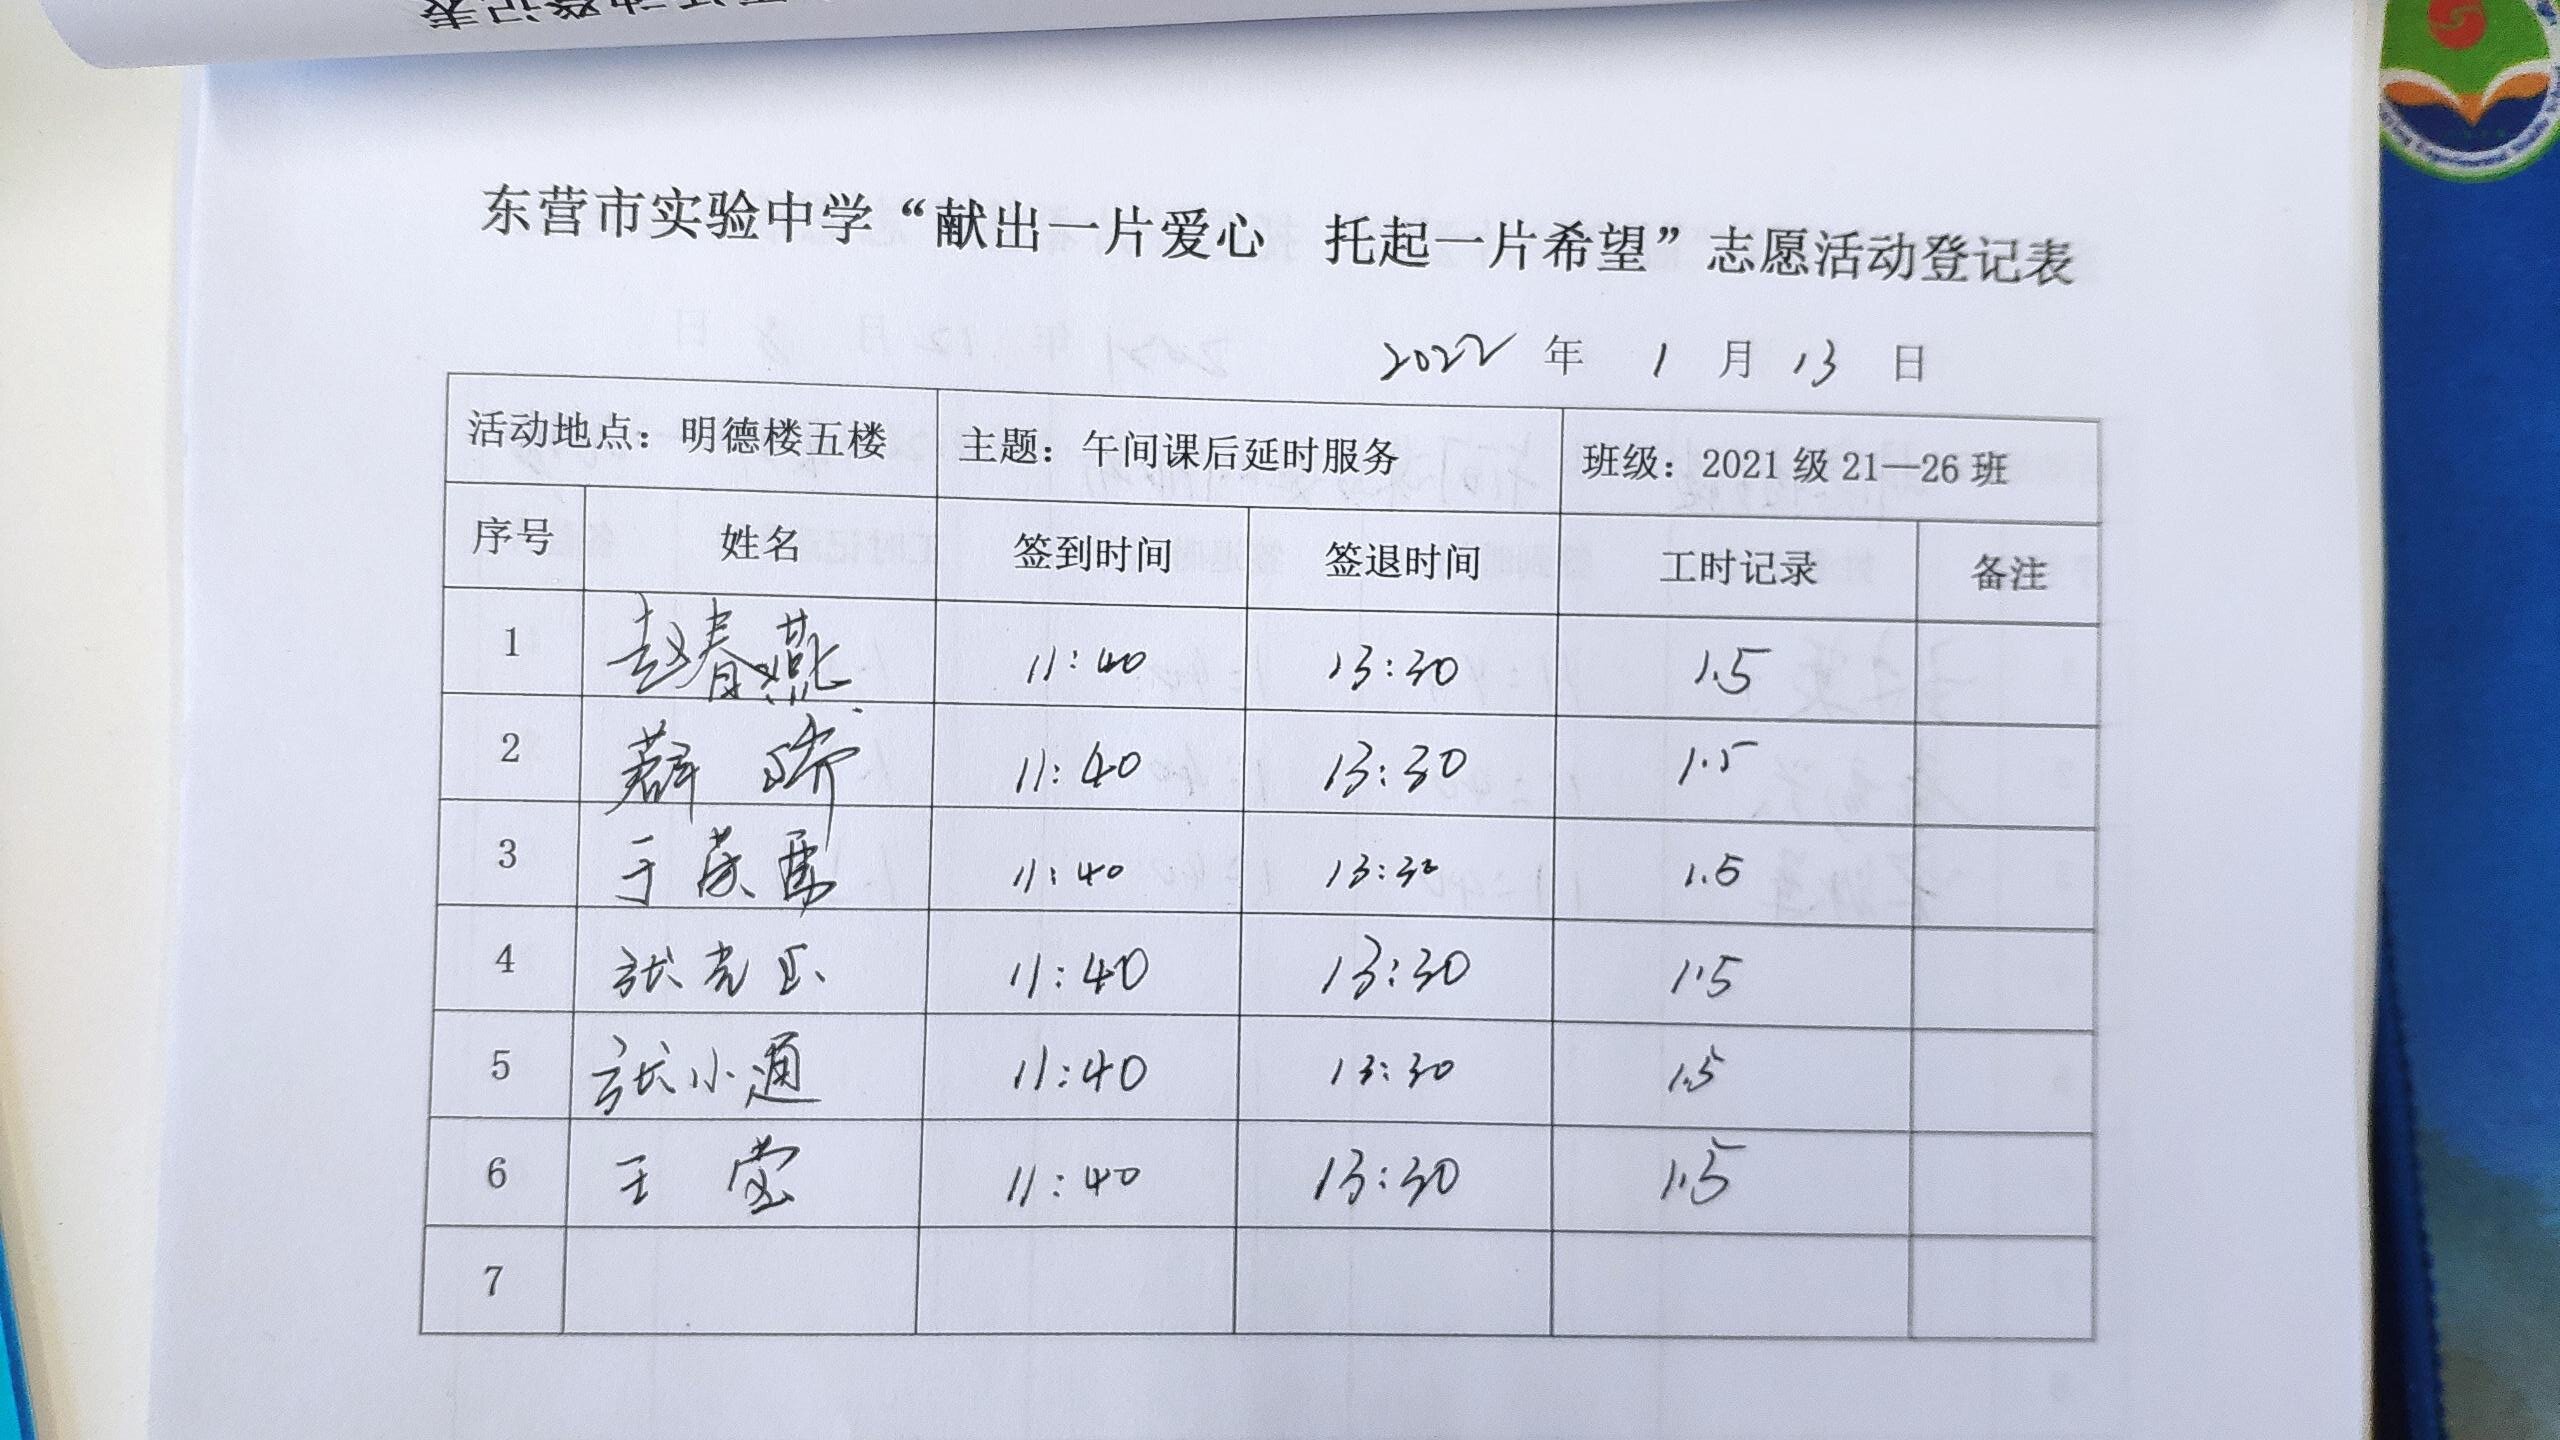 东营市实验中学“献出一片爱心 托起一片希望”志愿活动登记表
2022 年 1 月 13 日
活动地点：明德楼五楼 主题：午间课后延时服务 班级：2021级21—26班
序号 姓名 签到时间 签退时间 工时记录 备注
1 赵春燕 11:40 13:30 1.5
2 薛娇 11:40 13:30 1.5
3 于 11:40 13:30 1.5
4 张 11:40 13:30 1.5
5 张小通 11:40 13:30 1.5
6 王莹 11:40 13:30 1.5
7